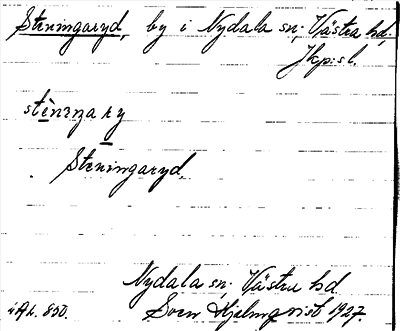 Steningaryd, by i Nydala sn, Västra hd,
Jkp:s l.
Steningaryd.
Nydala sn, Västra hd.
Sven Hjelmqvist 1927.